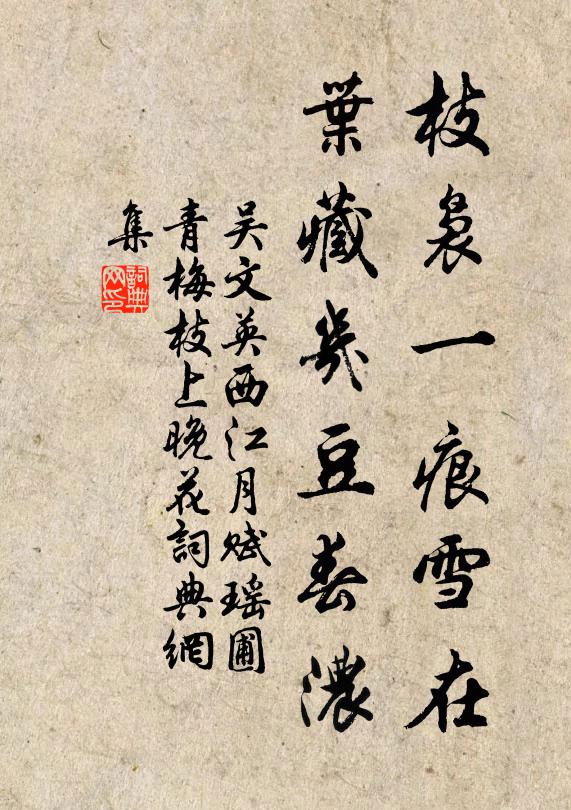 枝袅一痕雪在
葉藏幾豆春濃
吴文英西江月賦瑶圃
青梅枝上晚花詞典網
集
詞典
网印